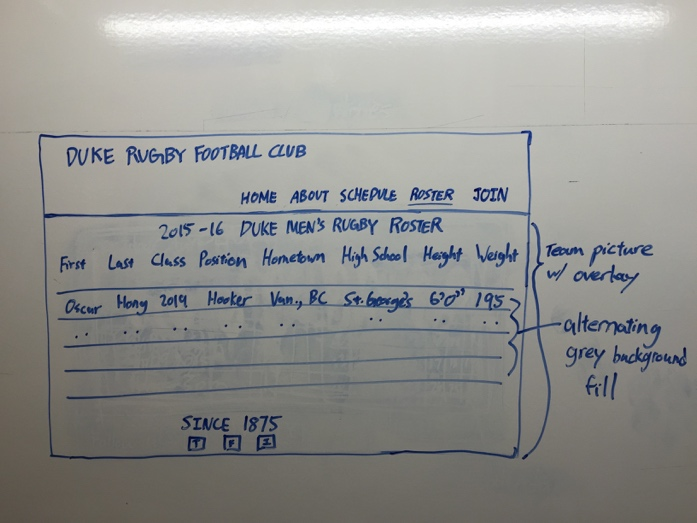 DUKE RUGBY FOOTBALL CLUB
HOME ABOUT SCHEDULE ROSTER JOIN
2015-16 DUKE MEN'S RUGBY ROSTER
First Last Class Position Hometown High School Height Weight
Oscar Hong 2019 Hooker Van., BC St. George's 6'0" 195
Team picture
w/ overlay
alternating
grey background
fill
SINCE 1875
T F I